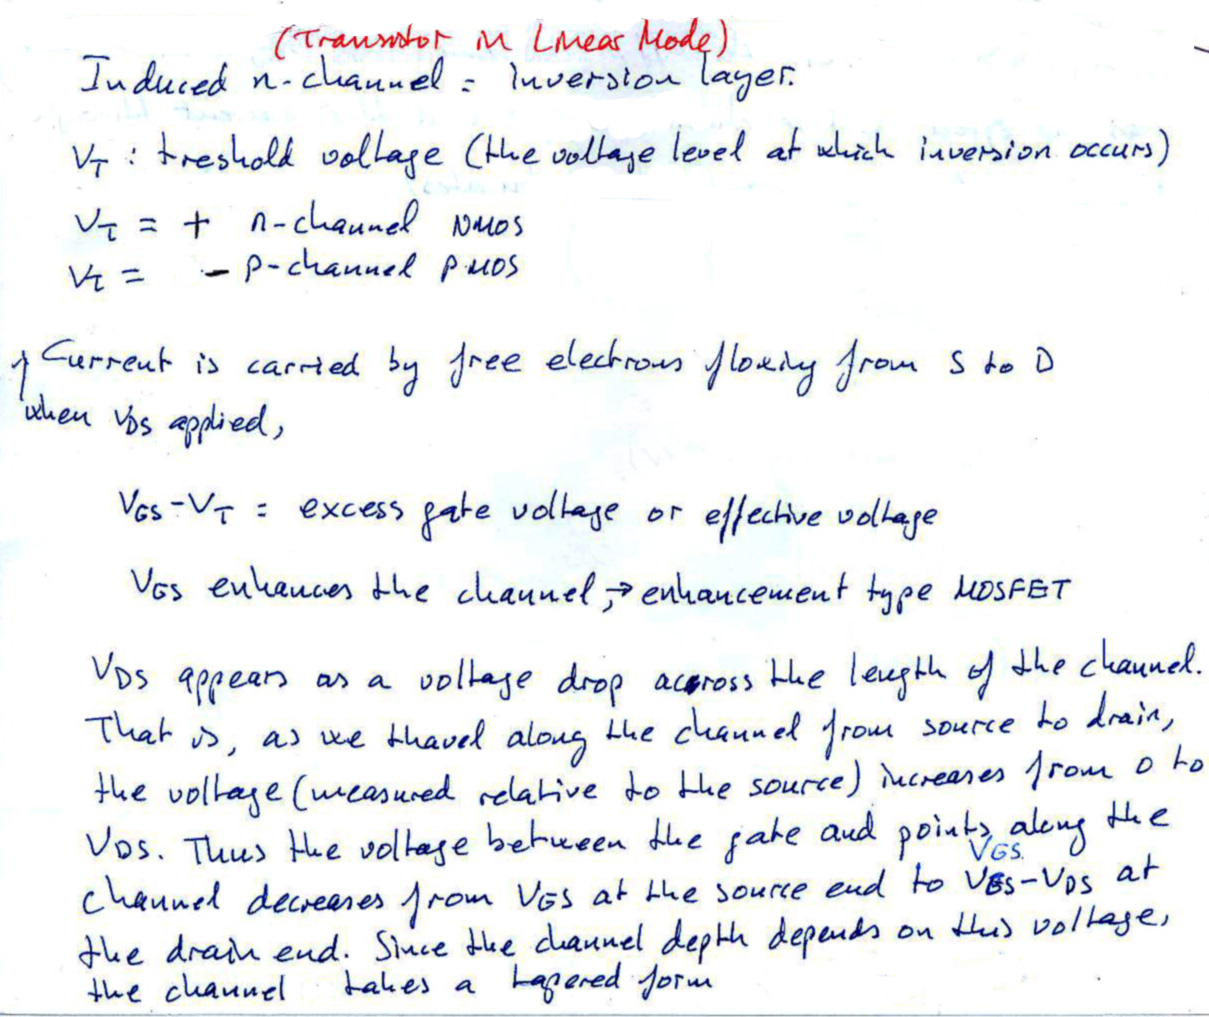 (Transistor in Linear Mode)
Induced n-channel = inversion layer.
VT : treshold voltage (the voltage level at which inversion occurs)
VT = + n-channel NMOS
VT = - p-channel PMOS
Current is carried by free electrons floxing from S to D
when VDS applied,
VGS-VT = excess gate voltage or effective voltage
VGS enhances the channel, → enhancement type MOSFET
VDS appears as a voltage drop across the length of the channel.
That is, as we thavel along the channel from source to drain,
the voltage (measured relative to the source) increases from 0 to
VDS. Thus the voltage between the gate and points along the
VGS
channel decreases from VGS at the source end to VGS-VDS at
the drain end. Since the channel depth depends on this voltage,
the channel takes a tapered form